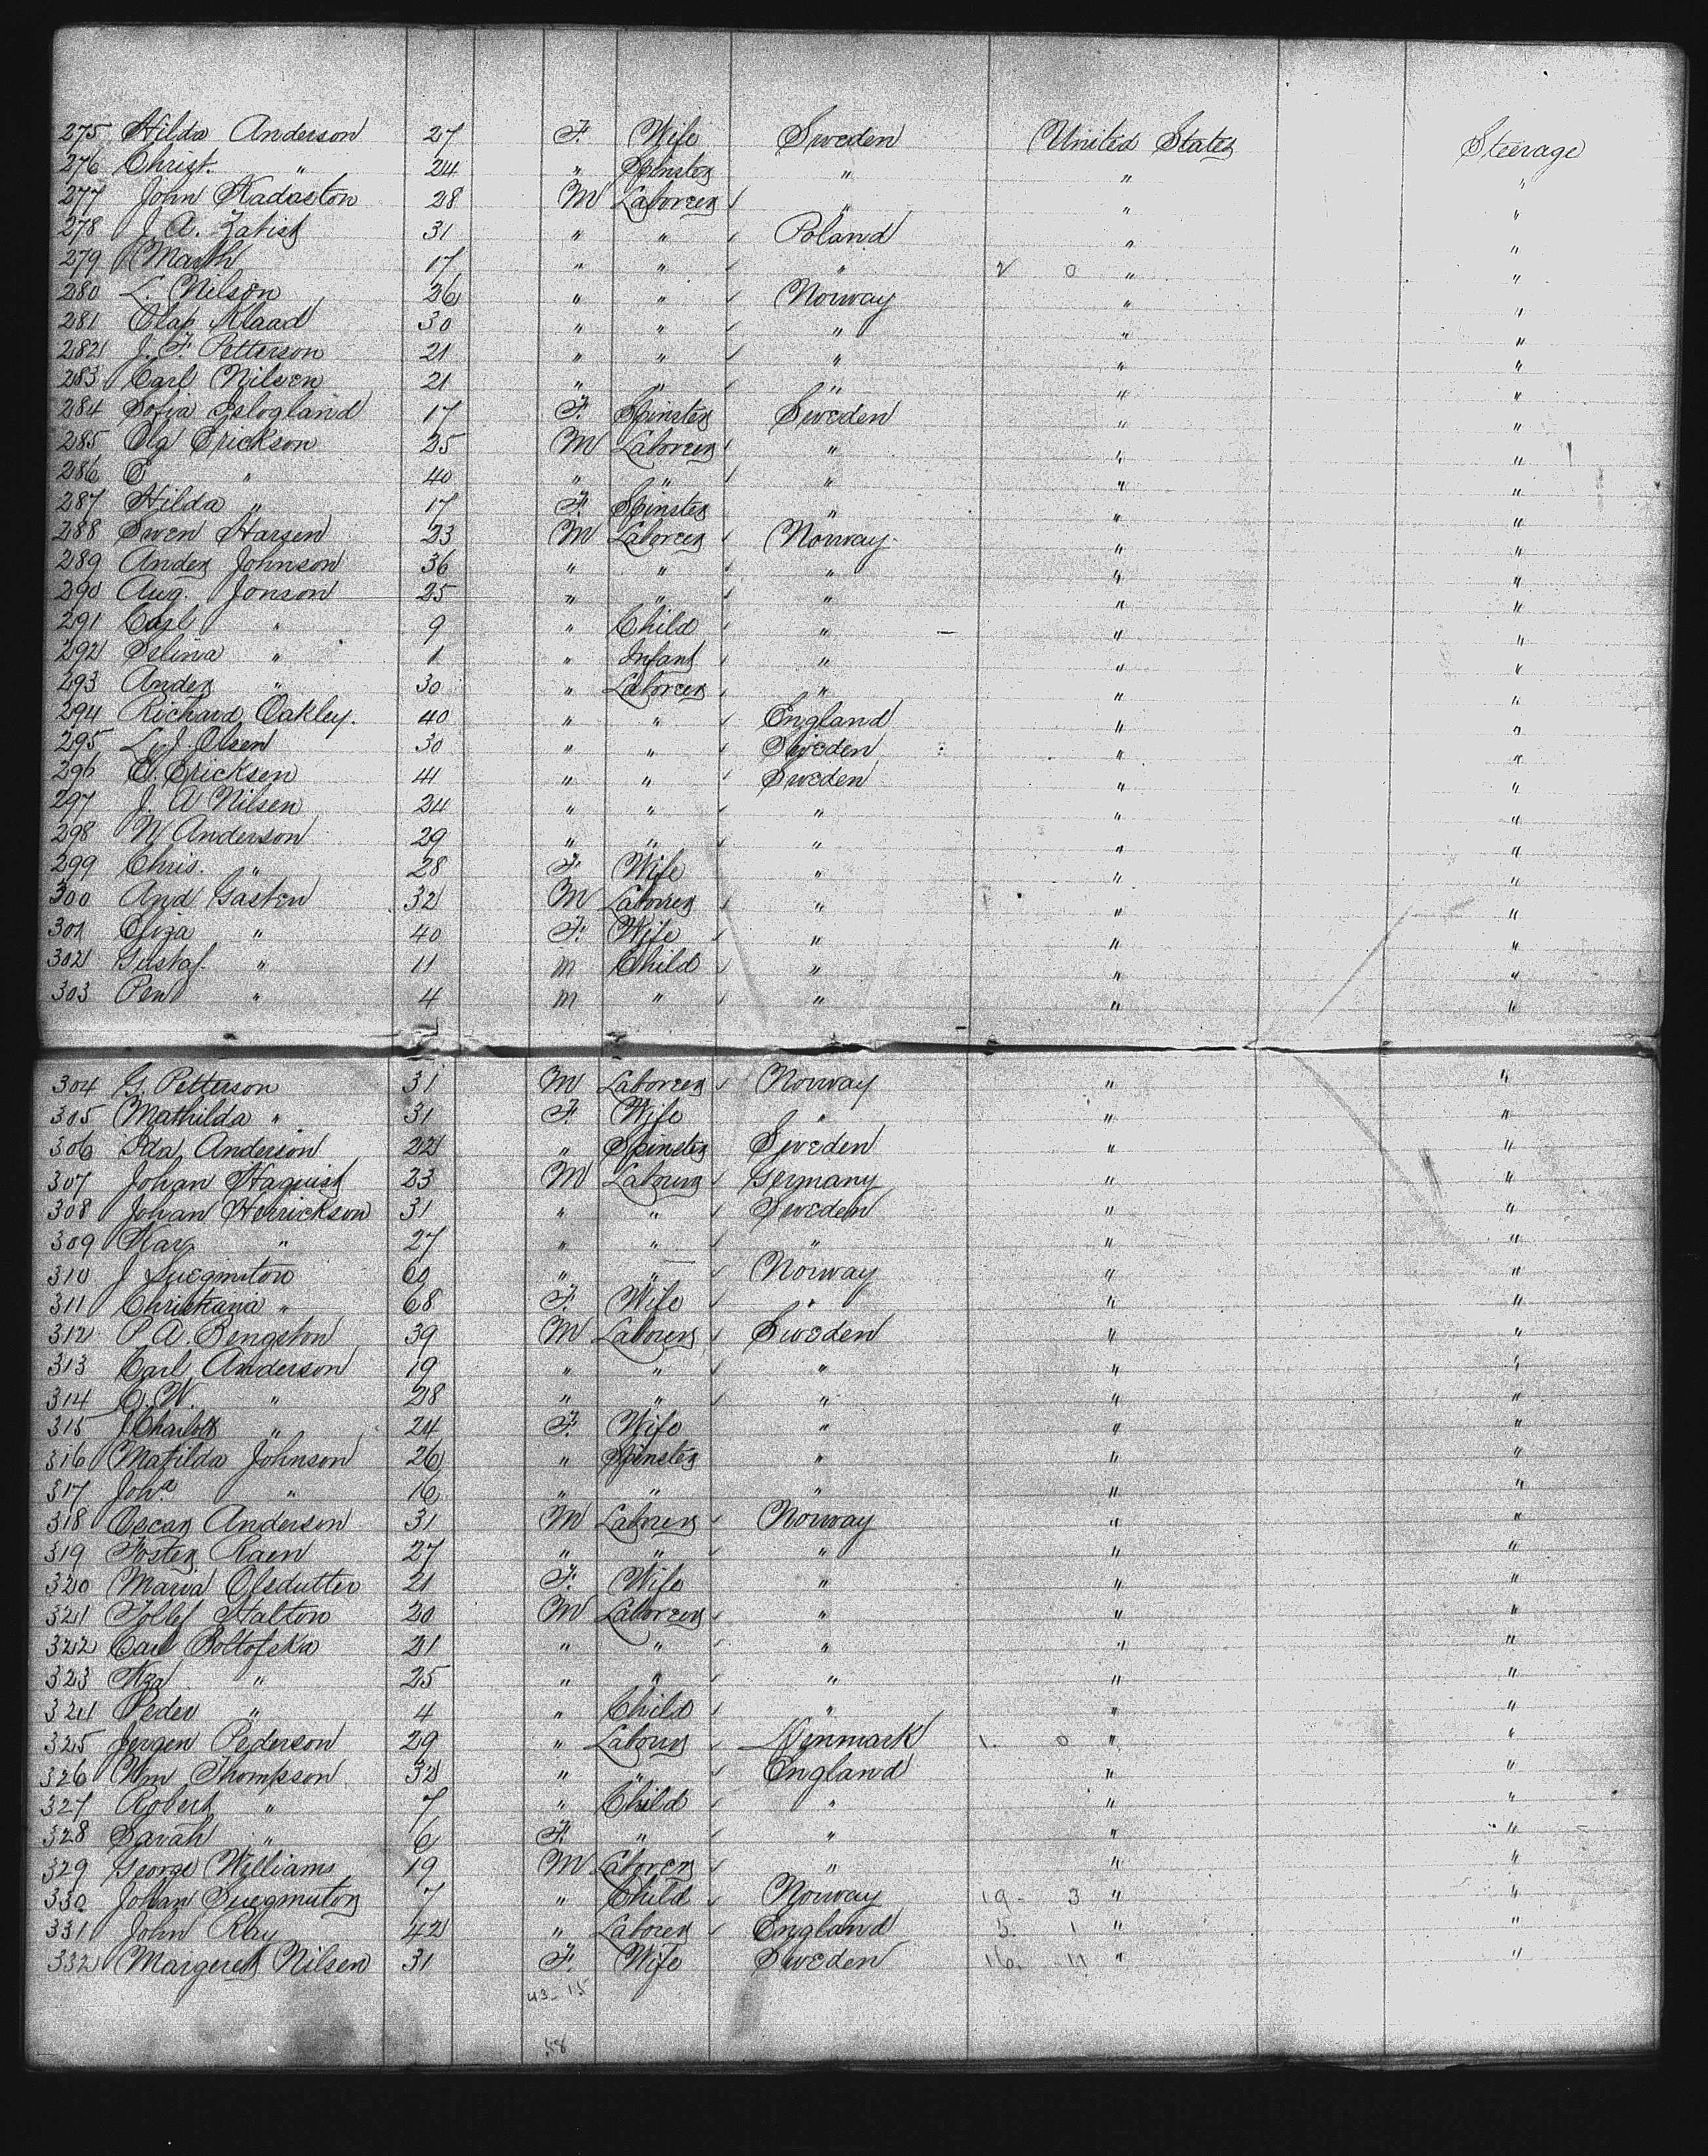 275 Hilda Anderson 27 F. Wife Sweden United States Steerage
276 Christ. " 24 " Spinster " " "
277 John Kadaston 28 M Laborer " " "
278 J. A. Zatist 31 " " Poland " "
279 Marth 17 " " " 2 0 " "
280 L. Nilson 26 " " Norway " "
281 Olap Klaad 30 " " " " "
282 J. F. Petterson 21 " " " " "
283 Carl Nilsen 21 " " " " "
284 Sofia 17 F. Spinster Sweden " "
285 Olg Erickson 25 M Laborer " " "
286 O " 40 " " " " "
287 Hilda " 17 F. Spinster " " "
288 Swen Harsen 23 M Laborer Norway " "
289 Ander Johnson 36 " " " " "
290 Aug. Jonson 25 " " " " "
291 Carl " 9 " Child " " "
292 Selina " 1 " Infant " " "
293 Ander " 30 " Laborer " " "
294 Richard Oakley. 40 " " England " "
295 L. J. Olsen 30 " " Sweden " "
296 E. Ericksen 44 " " Sweden " "
297 J. A Nilsen 24 " " " " "
298 N Anderson 29 " " " " "
299 Chris. " 28 F. Wife " " "
300 And Gasten 32 M Laborer " " "
301 Eliza " 40 F. Wife " " "
302 Gustaf. " 11 m Child " " "
303 Pen " 4 m " " " "
304 G. Petterson 31 M Laborer Norway " "
305 Mathilda " 31 F. Wife " " "
306 Ida Anderson 22 " Spinster Sweden " "
307 Johan Haquist 23 M Laborer Germany " "
308 Johan Herrickson 31 " " Sweden " "
309 Kar " 27 " " " " "
310 J Suegmuton 60 " " Norway " "
311 Christiania " 68 F. Wife " " "
312 P. A. Bengston 39 M Laborer Sweden " "
313 Carl Anderson 19 " " " " "
314 C. W. " 28 " " " " "
315 Charlott " 24 F. Wife " " "
316 Matilda Johnson 26 " Spinster " " "
317 Joha " 16 " " " " "
318 Oscar Anderson 31 M Laborer Norway " "
319 Foster Raen 27 " " " " "
320 Maria Olsdutter 21 F. Wife " " "
321 Tollef Halton 20 M Laborer " " "
322 Carl Boltofska 21 " " " " "
323 " 25 " " " " "
324 Peder " 4 " Child " " "
325 Jergen Pederson 29 " Laborer Denmark 1. 0 " "
326 Wm Thompson 32 " " England " "
327 Robert " 7 " Child " " "
328 Sarah " 6 F. " " " "
329 George Williams 19 M Laborer " " "
330 Johan Suegmuton 7 " Child Norway 19 - 3 " "
331 John Ray 42 " Laborer England 5. 1 " "
332 Margeret Nilsen 31 F. Wife Sweden 16. 11 " "
43 - 15
58